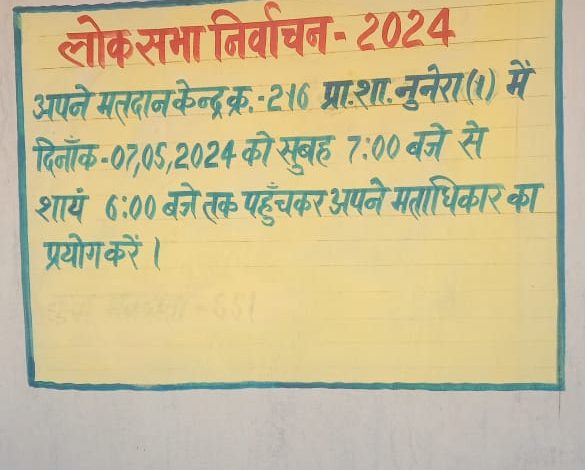 लोक सभा निर्वाचन - 2024
अपने मतदान केन्द्र क्र. - 216 प्रा.शा. नुनेरा (1) में
दिनाँक - 07,05,2024 को सुबह 7:00 बजे से
शायं 6:00 बजे तक पहुँचकर अपने मताधिकार का
प्रयोग करें।